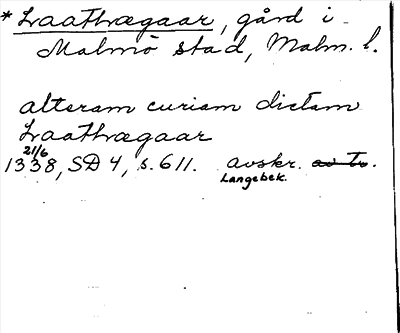 *Laathægaar, gård i
Malmö stad, Malm. l.
alteram curiam dictam
Laathægaar
21/6
1338, SD 4, s. 611. avskr. av tr.
Langebek.